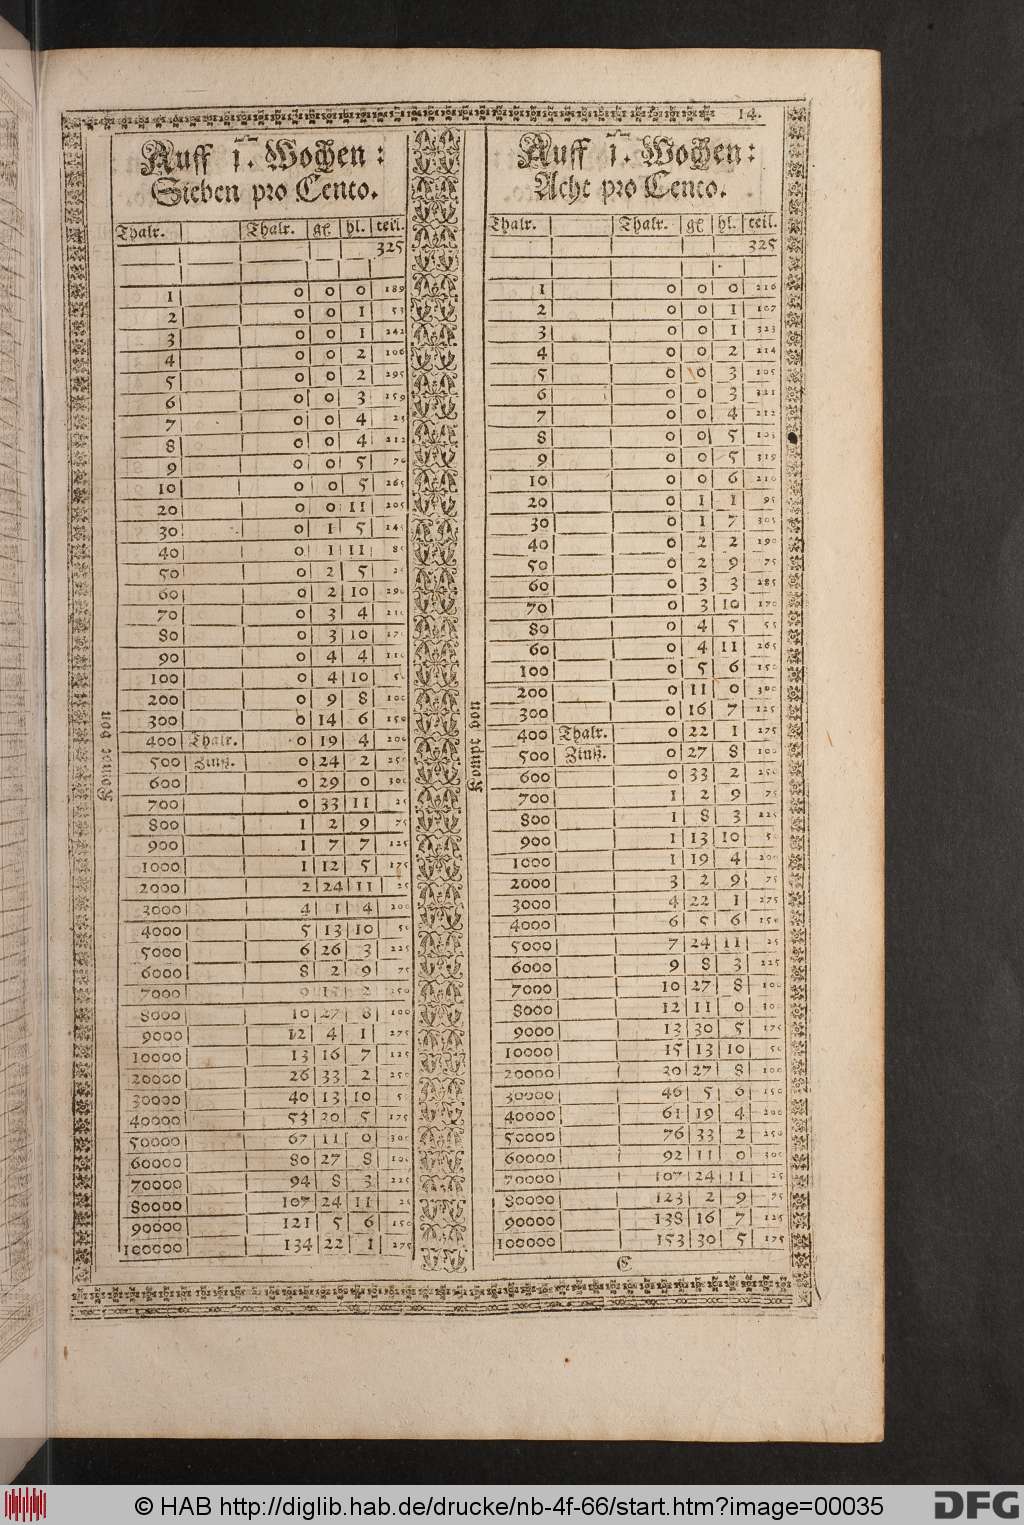 14.
Auff 1. Wochen:
Sieben pro Cento.
Thalr. Thalr. gl hl. teil.
325
1 0 0 0 189
2 0 0 1 53
3 0 0 1 242
4 0 0 2 106
5 0 0 2 295
6 0 0 3 159
7 0 0 4 23
8 0 0 4 212
9 0 0 5 76
10 0 0 5 265
20 0 0 11 205
30 0 1 5 145
40 0 1 11 8
50 0 2 5 2
60 0 2 10 290
70 0 3 4 230
80 0 3 10 170
90 0 4 4 110
100 0 4 10 50
200 0 9 8 100
300 0 14 6 150
400 Thalr. 0 19 4 200
500 Zinß. 0 24 2 250
600 0 29 0 300
700 0 33 11 25
800 1 2 9 75
900 1 7 7 125
1000 1 12 5 175
2000 2 24 11 25
3000 4 1 4 200
4000 5 13 10 50
5000 6 26 3 225
6000 8 2 9 75
7000 9 15 2 250
8000 10 27 8 100
9000 12 4 1 275
10000 13 16 7 125
20000 26 33 2 250
30000 40 13 10 5
40000 53 30 5 175
50000 67 11 0 300
60000 80 27 8 100
70000 94 8 3 225
80000 107 24 11 25
90000 121 5 6 150
100000 134 22 1 275
Kompt von
Auff 1. Wochen:
Acht pro Cento.
Thalr. Thalr. gl hl. teil.
325
1 0 0 0 216
2 0 0 1 107
3 0 0 1 323
4 0 0 2 214
5 0 0 3 105
6 0 0 3 321
7 0 0 4 212
8 0 0 5 103
9 0 0 5 319
10 0 0 6 210
20 0 1 1 95
30 0 1 7 305
40 0 2 2 190
50 0 2 9 75
60 0 3 3 285
70 0 3 10 170
80 0 4 5 55
60 0 4 11 265
100 0 5 6 150
200 0 11 0 300
300 0 16 7 125
400 Thalr. 0 22 1 275
500 Zinß. 0 27 8 100
600 0 33 2 250
700 1 2 9 75
800 1 8 3 225
900 1 13 10 50
1000 1 19 4 200
2000 3 2 9 75
3000 4 22 1 275
4000 6 5 6 150
5000 7 24 11 25
6000 9 8 3 225
7000 10 27 8 100
8000 12 11 0 300
9000 13 30 5 175
10000 15 13 10 50
20000 30 27 8 100
30000 46 5 6 150
40000 61 19 4 200
50000 76 33 2 250
60000 92 11 0 300
70000 107 24 11 25
80000 123 2 9 75
90000 138 16 7 125
100000 153 30 5 175
Kompt von
C
© HAB http://diglib.hab.de/drucke/nb-4f-66/start.htm?image=00035
DFG